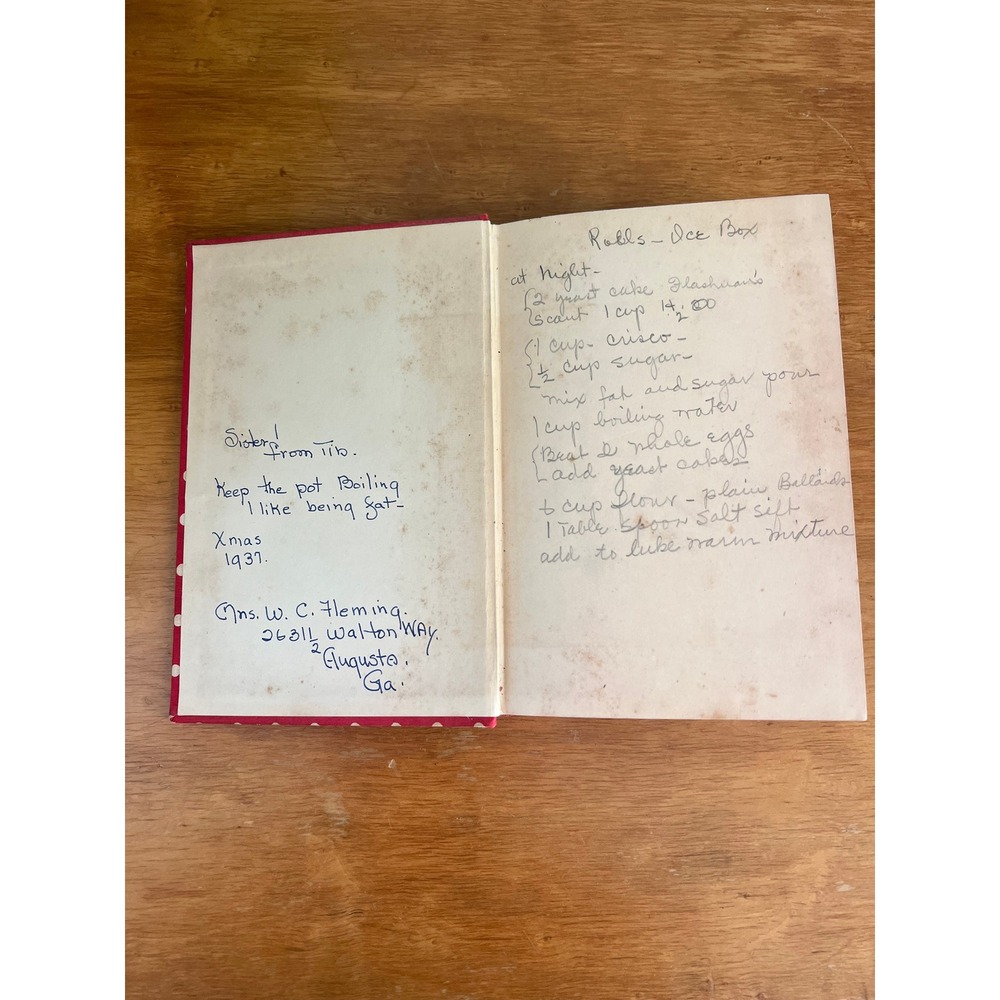 Sister!
from Tib.
Keep the pot Boiling
I like being fat-
Xmas
1937.
Mrs. W. C. Fleming.
2631 1/2 Walton Way.
Augusta.
Ga.
Rolls - Ice Box
at night-
2 yeast cake Flashman's
scant 1 cup
1 cup- crisco-
1/2 cup sugar-
mix fat and sugar pour
1 cup boiling water
Beat 2 whole eggs
add yeast cakes
6 cup flour - plain Ballards
1 Table spoon salt sift
add to luke warm mixture